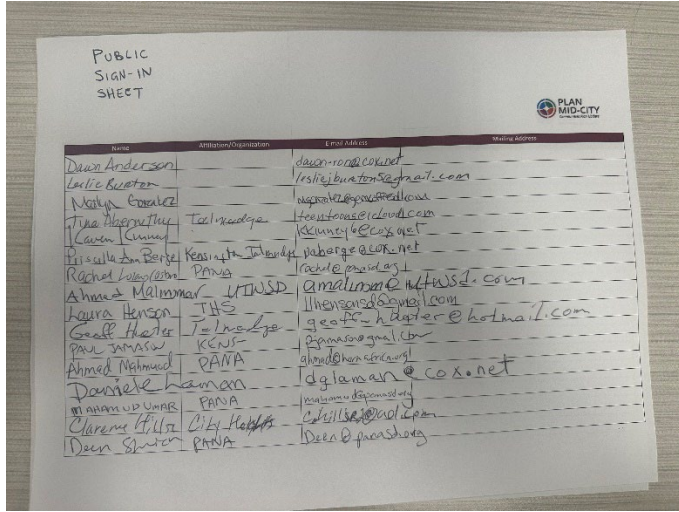 PUBLIC
SIGN-IN
SHEET
PLAN
MID-CITY
Name Affiliation/Organization E-mail Address Mailing Address
Dawn Anderson dawn-ron@cox.net
Leslie Burton lesliejburton58@gmail.com
Marlyn Gonzalez
Tina Abernathy Talmadge teentoons@icloud.com
Karen Kinney kkinney6@cox.net
Priscilla Ann Berge Kensington Talmadge paberge@cox.net
Rachel PANA rachel@panasd.org
Ahmed Malinmar UTWSD
Laura Henson THS llhensonsd@gmail.com
Geoff Hueter Talmadge geoff_hueter@hotmail.com
PAUL JAMASON KENS- pjamason@gmail.com
Ahmed Mahmud PANA
Daniele Laman dglaman@cox.net
MAHAMUD UMAR PANA
Clarence Hills City Heights
Deen PANA Deen@panasd.org